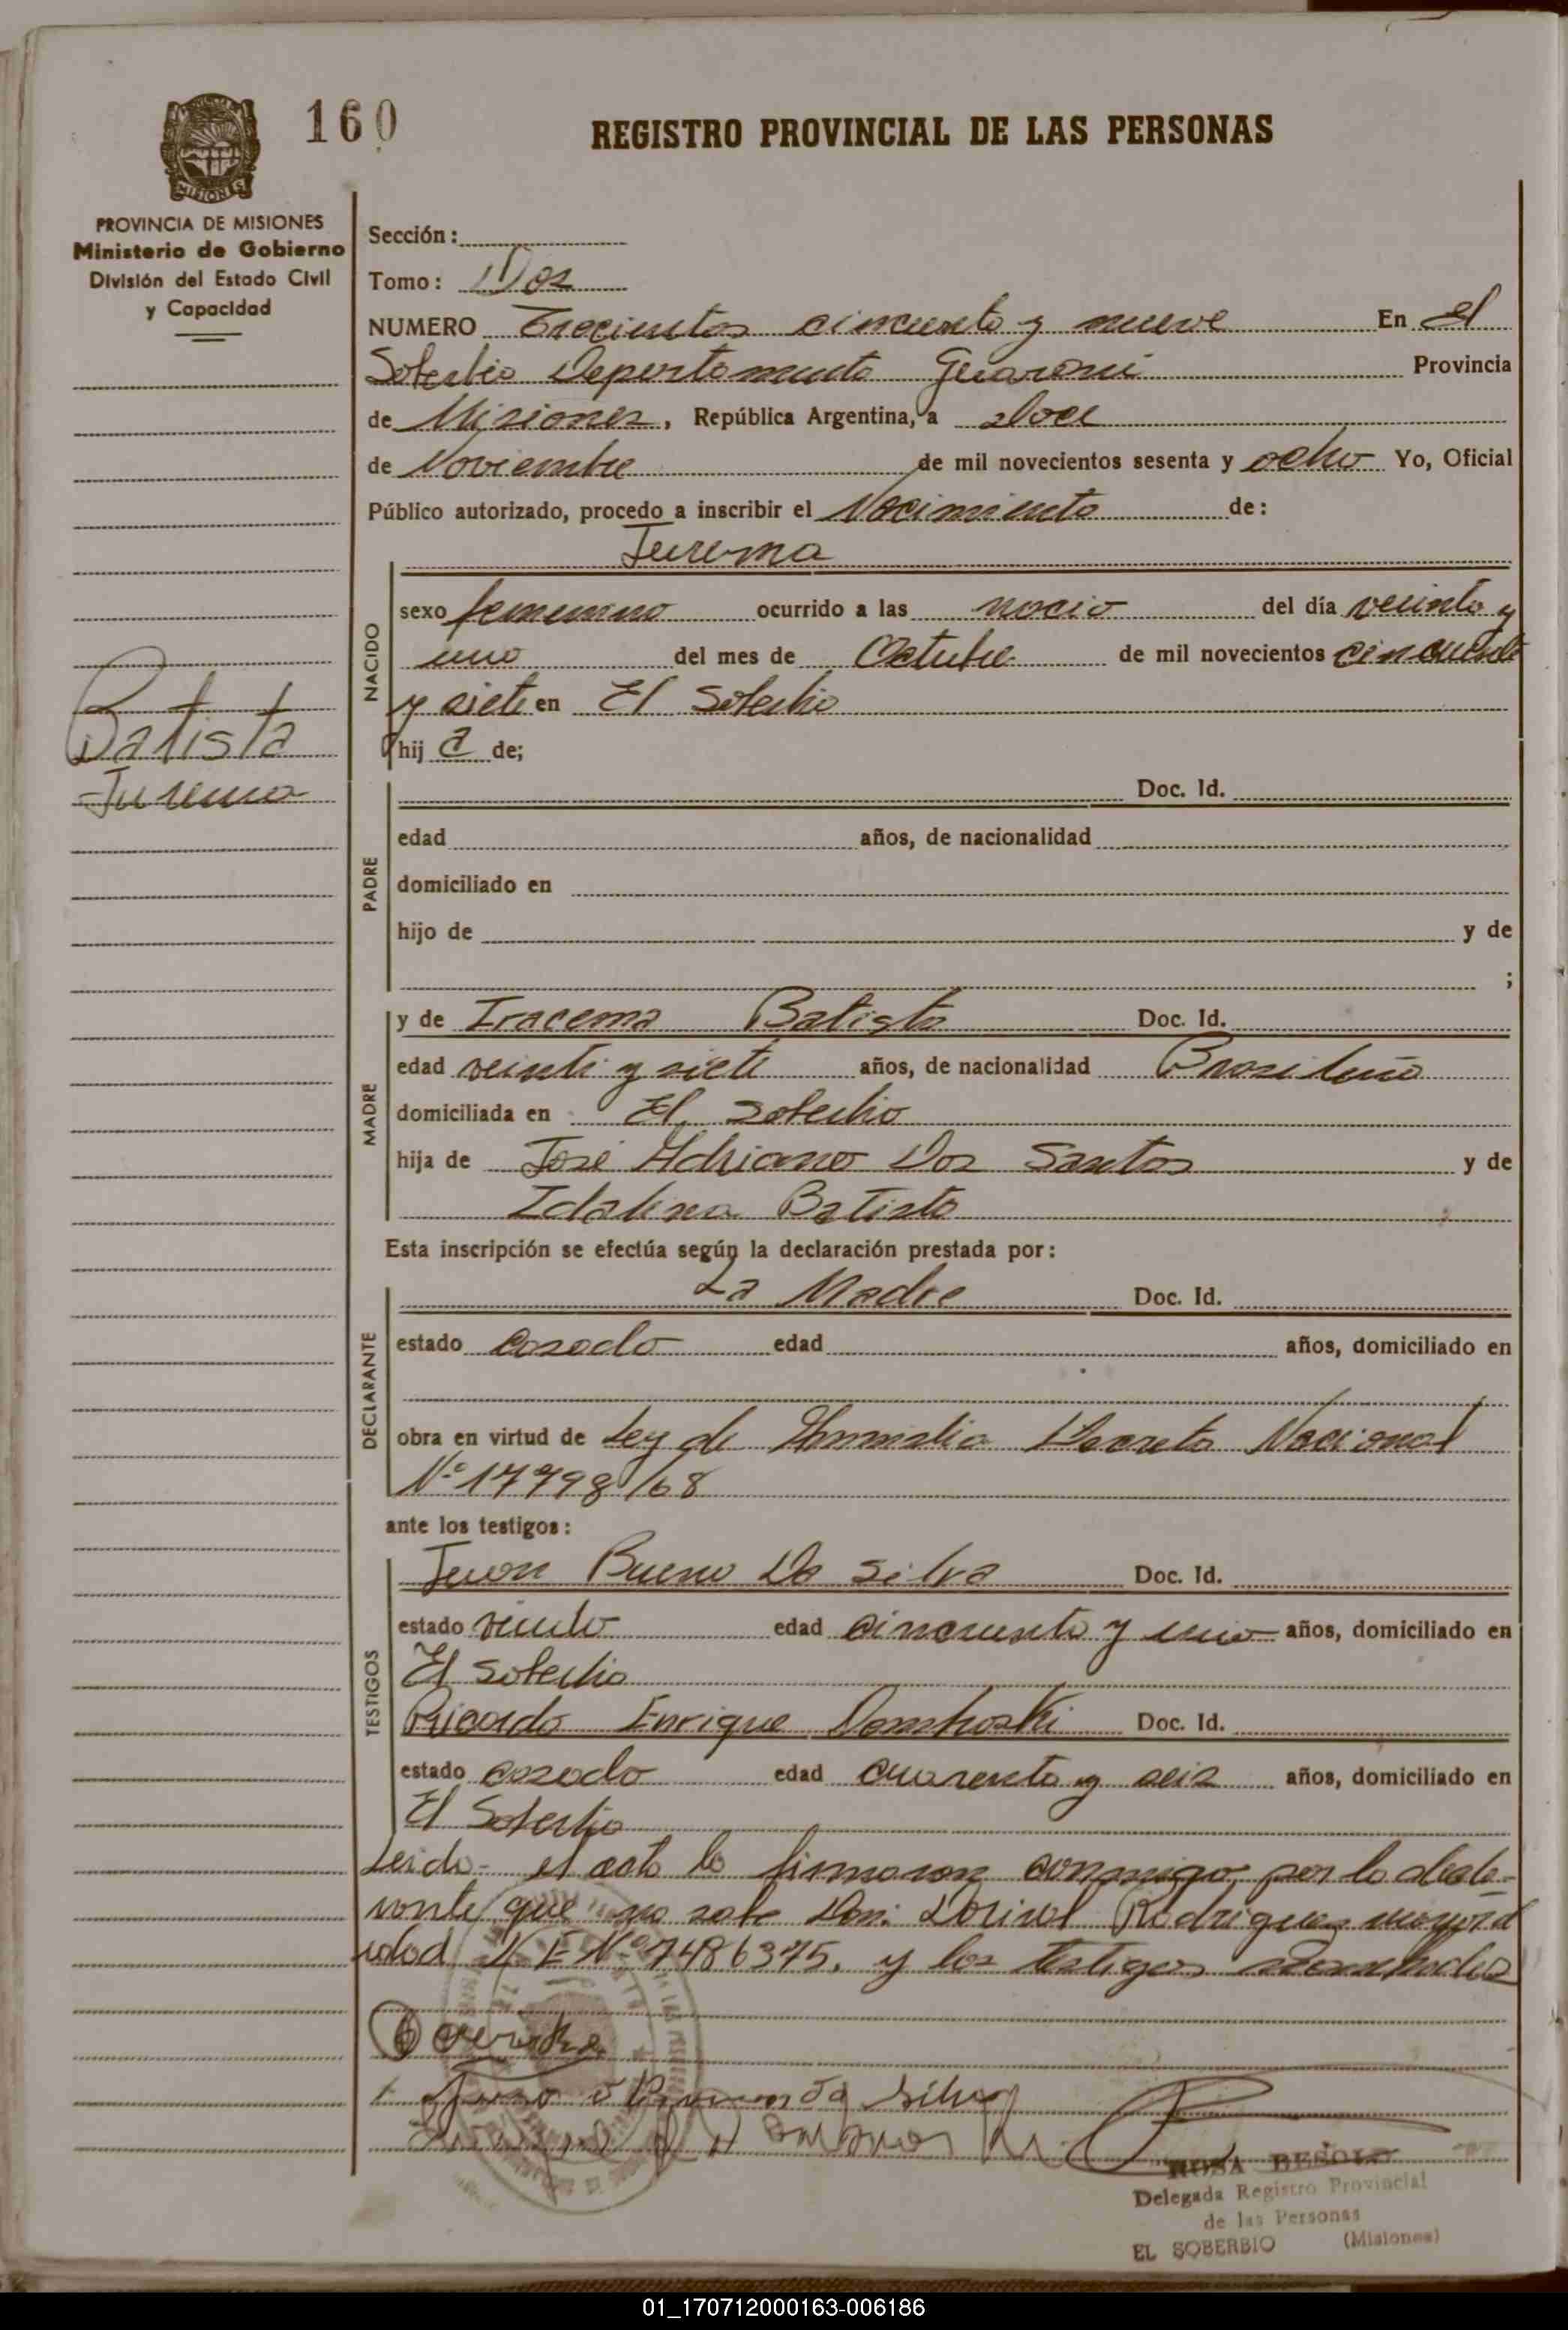 160
REGISTRO PROVINCIAL DE LAS PERSONAS
MISIONES
PROVINCIA DE MISIONES
Ministerio de Gobierno
División del Estado Civil
y Capacidad
Batista
Jurema
Sección:
Tomo: Dos
NUMERO Trecientos cincuenta y nueve En El
Soberbio Departamento Guaraní Provincia
de Misiones, República Argentina, a doce
de Noviembre de mil novecientos sesenta y ocho Yo, Oficial
Público autorizado, procedo a inscribir el Nacimiento de:
Jurema
NACIDO
sexo femenino ocurrido a las nacio del día veinte y
uno del mes de Octubre de mil novecientos cincuenta
y siete en El Soberbio
hij a de;
PADRE
Doc. Id.
edad años, de nacionalidad
domiciliado en
hijo de y de
;
MADRE
y de Iracema Batista Doc. Id.
edad veinte y siete años, de nacionalidad Brasileña
domiciliada en El Soberbio
hija de José Adriano Dos Santos y de
Idalina Batista
Esta inscripción se efectúa según la declaración prestada por:
DECLARANTE
La Madre Doc. Id.
estado casado edad años, domiciliado en
obra en virtud de Ley de Decreto Nacional
Nº 17998/68
ante los testigos:
TESTIGOS
Juan Bueno Da Silva Doc. Id.
estado viudo edad cincuenta y uno años, domiciliado en
El Soberbio
Ricardo Enrique Doc. Id.
estado casado edad cuarenta y seis años, domiciliado en
El Soberbio
Leida el acta la firmaron conmigo, por la decla-
rante que no sabe Don: Dorival Rodriguez mayor d
edad Nº 7486375. y los testigos
da Silva
ROSA
Delegada Registro Provincial
de las Personas
EL SOBERBIO (Misiones)
01_170712000163-006186